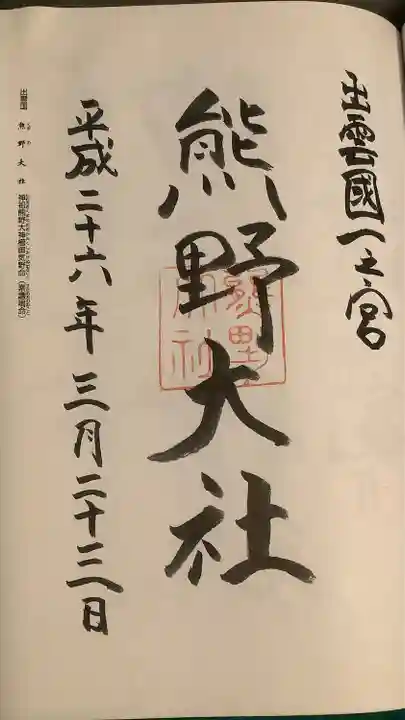 出雲國一之宮
熊野大社
熊野大社
平成二十六年三月二十三日
出雲国 熊野大社